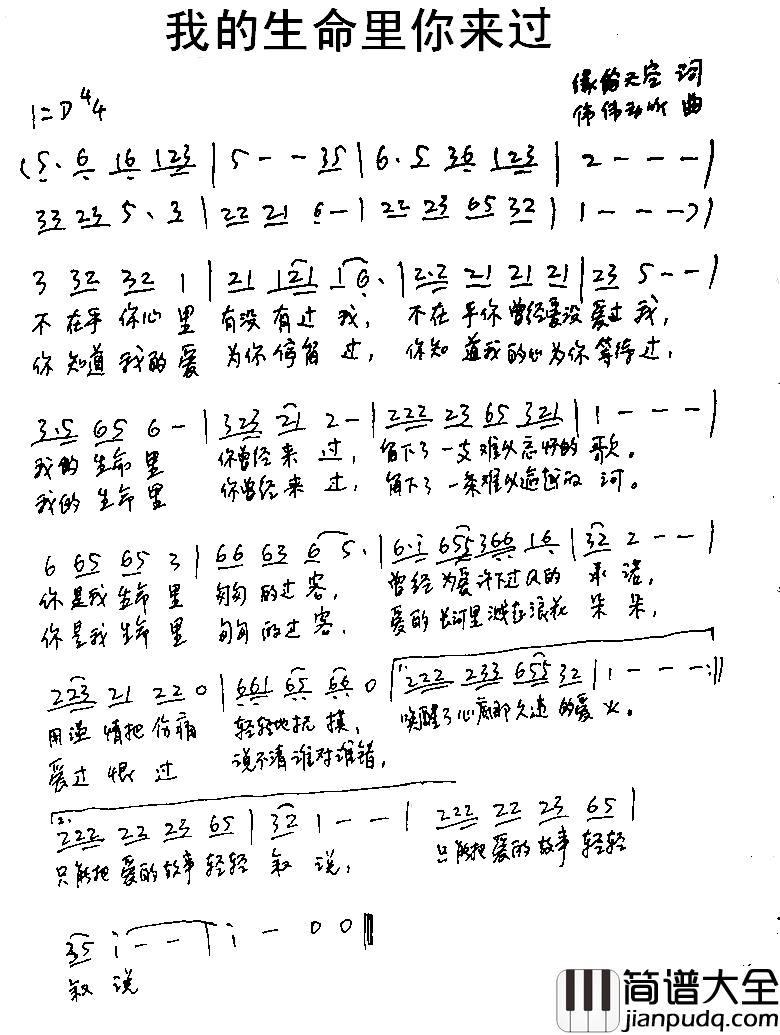 我的生命里你来过
缘的天空 词
1=D 4/4
伟伟 曲
(5· 6 16 123 | 5 - - 35 | 6· 5 36 123 | 2 - - - |
33 23 5· 3 | 22 21 6 - | 22 23 65 32 | 1 - - -) |
3 32 32 1 | 21 121 16· | 2·2 21 21 21 | 23 5 - - |
不在乎你心里 有没有过我， 不在乎你曾经爱没爱过我，
你知道我的爱 为你停留过， 你知道我的心为你等待过，
3·5 65 6 - | 323 21 2 - | 222 23 65 321 | 1 - - - |
我的生命里 你曾经来过， 留下了一支难以忘怀的歌。
我的生命里 你曾经来过， 留下了一条难以逾越的河。
6 65 65 3 | 66 63 6 5· | 6·i 655 366 16 | 32 2 - - |
你是我生命里 匆匆的过客， 曾经为爱许下过的承诺，
你是我生命里 匆匆的过客， 爱的长河里溅在浪花朵朵，
223 21 22 0 | 661 65 66 0 | 1. 222 233 655 32 | 1 - - - :||
用温情把伤痛 轻轻地抚摸， 唤醒了心底那久违的爱火。
爱过恨过 说不清谁对谁错，
2. 222 23 23 65 | 32 1 - - | 222 22 23 65 |
只能把爱的故事轻轻叙说， 只能把爱的故事轻轻
35 i - - | i - 0 0 ||
叙说
简谱大全
jianpudq.com